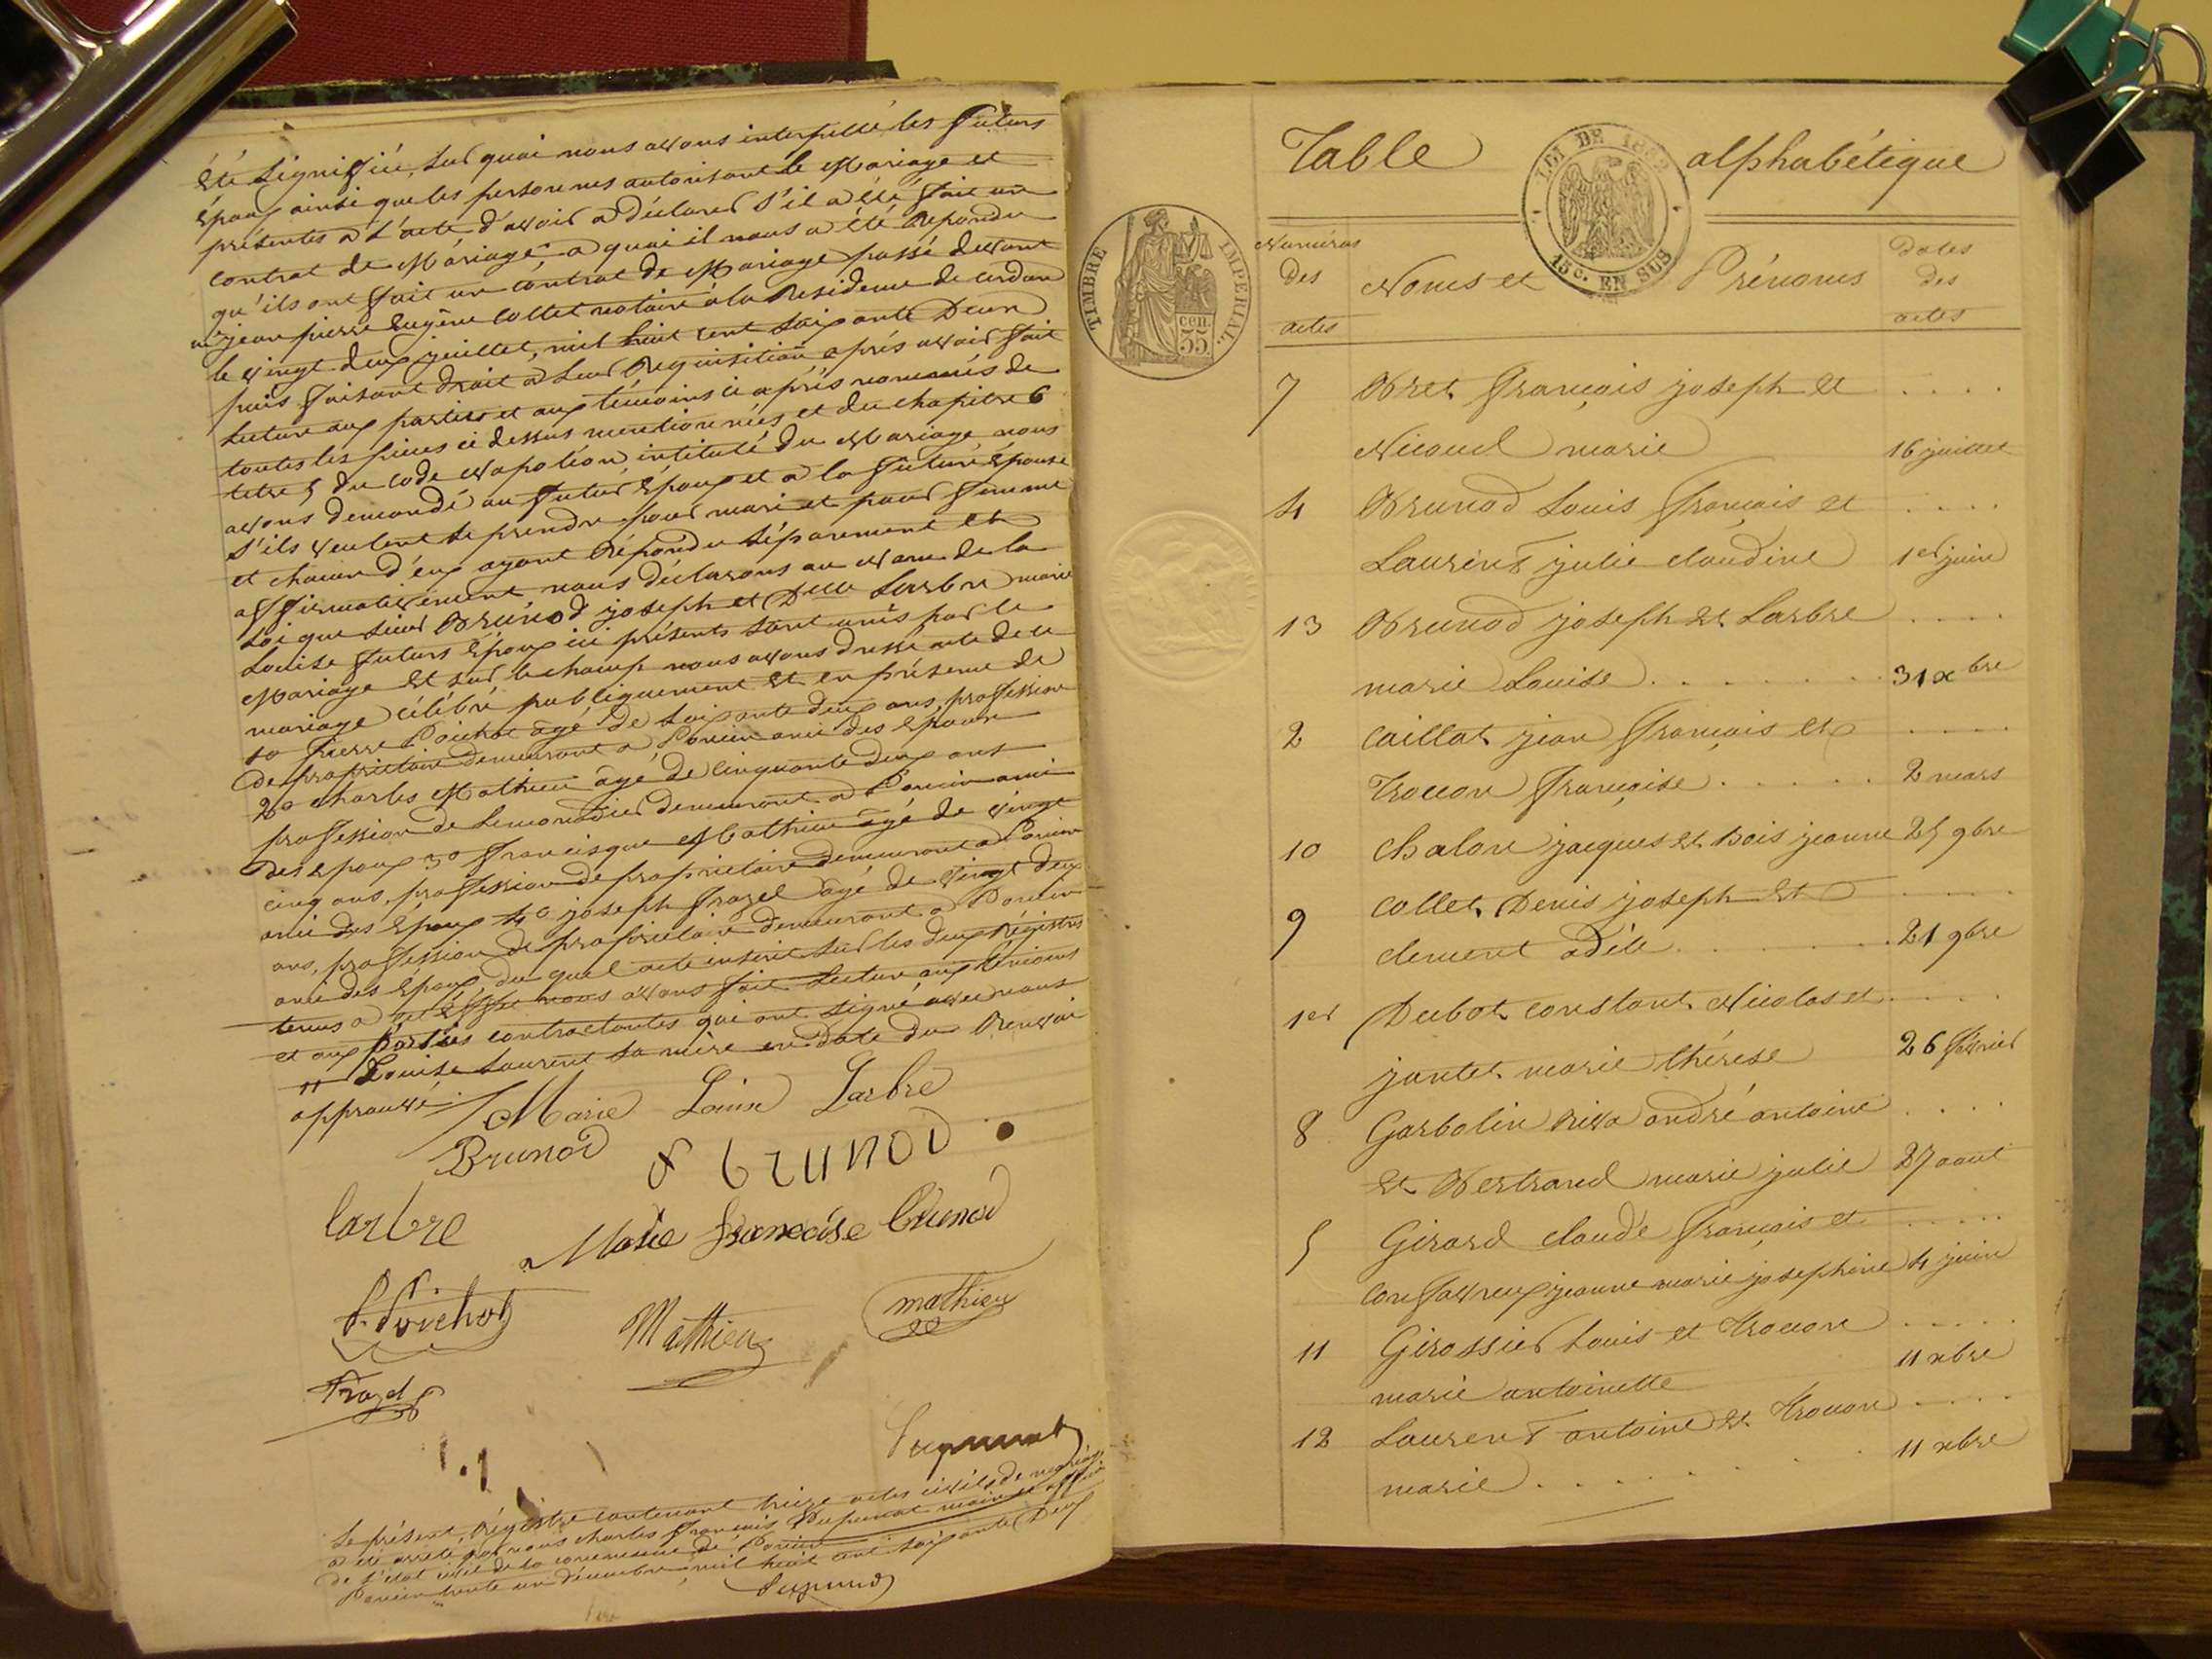 été signifiée, sur quoi nous avons interpellé les futurs
époux ainsi que les personnes autorisant le Mariage et
présentes à l'acte d'avoir à déclarer s'il a été fait un
contrat de Mariage a quoi il nous a été répondu
qu'ils ont fait un contrat de Mariage passé devant
me jean pierre Eugène Collet notaire à la Résidence de cerdon
le vingt deux juillet, mil huit cent soixante Deux
puis faisant droit à leur Réquisition après avoir fait
lecture aux parties et aux témoins ci après nommés de
toutes les pièces ci dessus mentionnées et du chapitre 6
titre 5 du code Napoléon, intitulé du Mariage nous
avons demandé au futur Epoux et à la future Epouse
s'ils veulent se prendre pour mari et pour femme
et chacun d'eux ayant répondu séparement et
affirmativement nous déclarons au nom de la
loi que sieur Brunod joseph et Dlle Larbre marie
Louise futurs Epoux ici présents sont unis par le
Mariage Et sur le champ nous avons dressé acte de ce
mariage célébré publiquement Et en présence de
1o Pierre Poichot âgé de soixante deux ans, profession
de propriétaire demeurant à Poncin ami des Epoux
2o charles Mathieu âgé de cinquante deux ans
profession de Limonadier demeurant à Poncin ami
des Epoux 3o francisque Mathieu âgé de vingt
cinq ans, profession de propriétaire demeurant à Poncin
ami des Epoux 4o joseph frazel âgé de vingt deux
ans, profession de propriétaire demeurant à Poncin
ami des Epoux, du quel acte inscrit sur les deux Régistres
tenus à cet effet nous avons fait Lecture aux témoins
et aux parties contractantes qui ont signé avec nous
Louise Laurent sa mère en date du Renvoi
approuvé
Marie Louise Larbre
Brunod
f brunod
larbre
Marie françoise brunod
P. Poichot
Mathieu
mathieu
Frazel
Le présent Régistre contenant treize actes civils de mariage
a été arrêté par nous charles françois Dupunat maire et officier
de l'état civil de la commune de Poncin
Poncin trente un décembre mil huit cent soixante Deux
Table alphabétique
LOI DE 1862
15 c. EN SUS
TIMBRE IMPERIAL
35 cen.
Numéros des actes
Noms et Prénoms
Dates des actes
7 Bret françois joseph et . . . .
Nicoud marie 16 juillet
4 Brunod Louis françois et . . . .
Laurent julie claudine 1er juin
13 Brunod joseph et Larbre . . . .
marie Louise . . . . . . . . 31 xbre
2 Caillat jean françois et . . . .
Trocon françoise . . . . . . 2 mars
10 Chalon jacques et Bois jeanne 25 9bre
9 Collet Denis joseph Et . . . .
clement adèle . . . . . . . . 21 9bre
1er Dubot constant Nicolas et . . . .
jantet marie thérese 26 février
8 Garbolin Riva andré antoine . . . .
et Bertrand marie julie 27 aout
5 Girard claude françois et . . . .
Confavreux jeanne marie josephine 4 juin
11 Girassier Louis et Trocon . . . .
marie antoinette 11 xbre
12 Laurent antoine et Trocon . . . .
marie . . . . . . . . 11 xbre